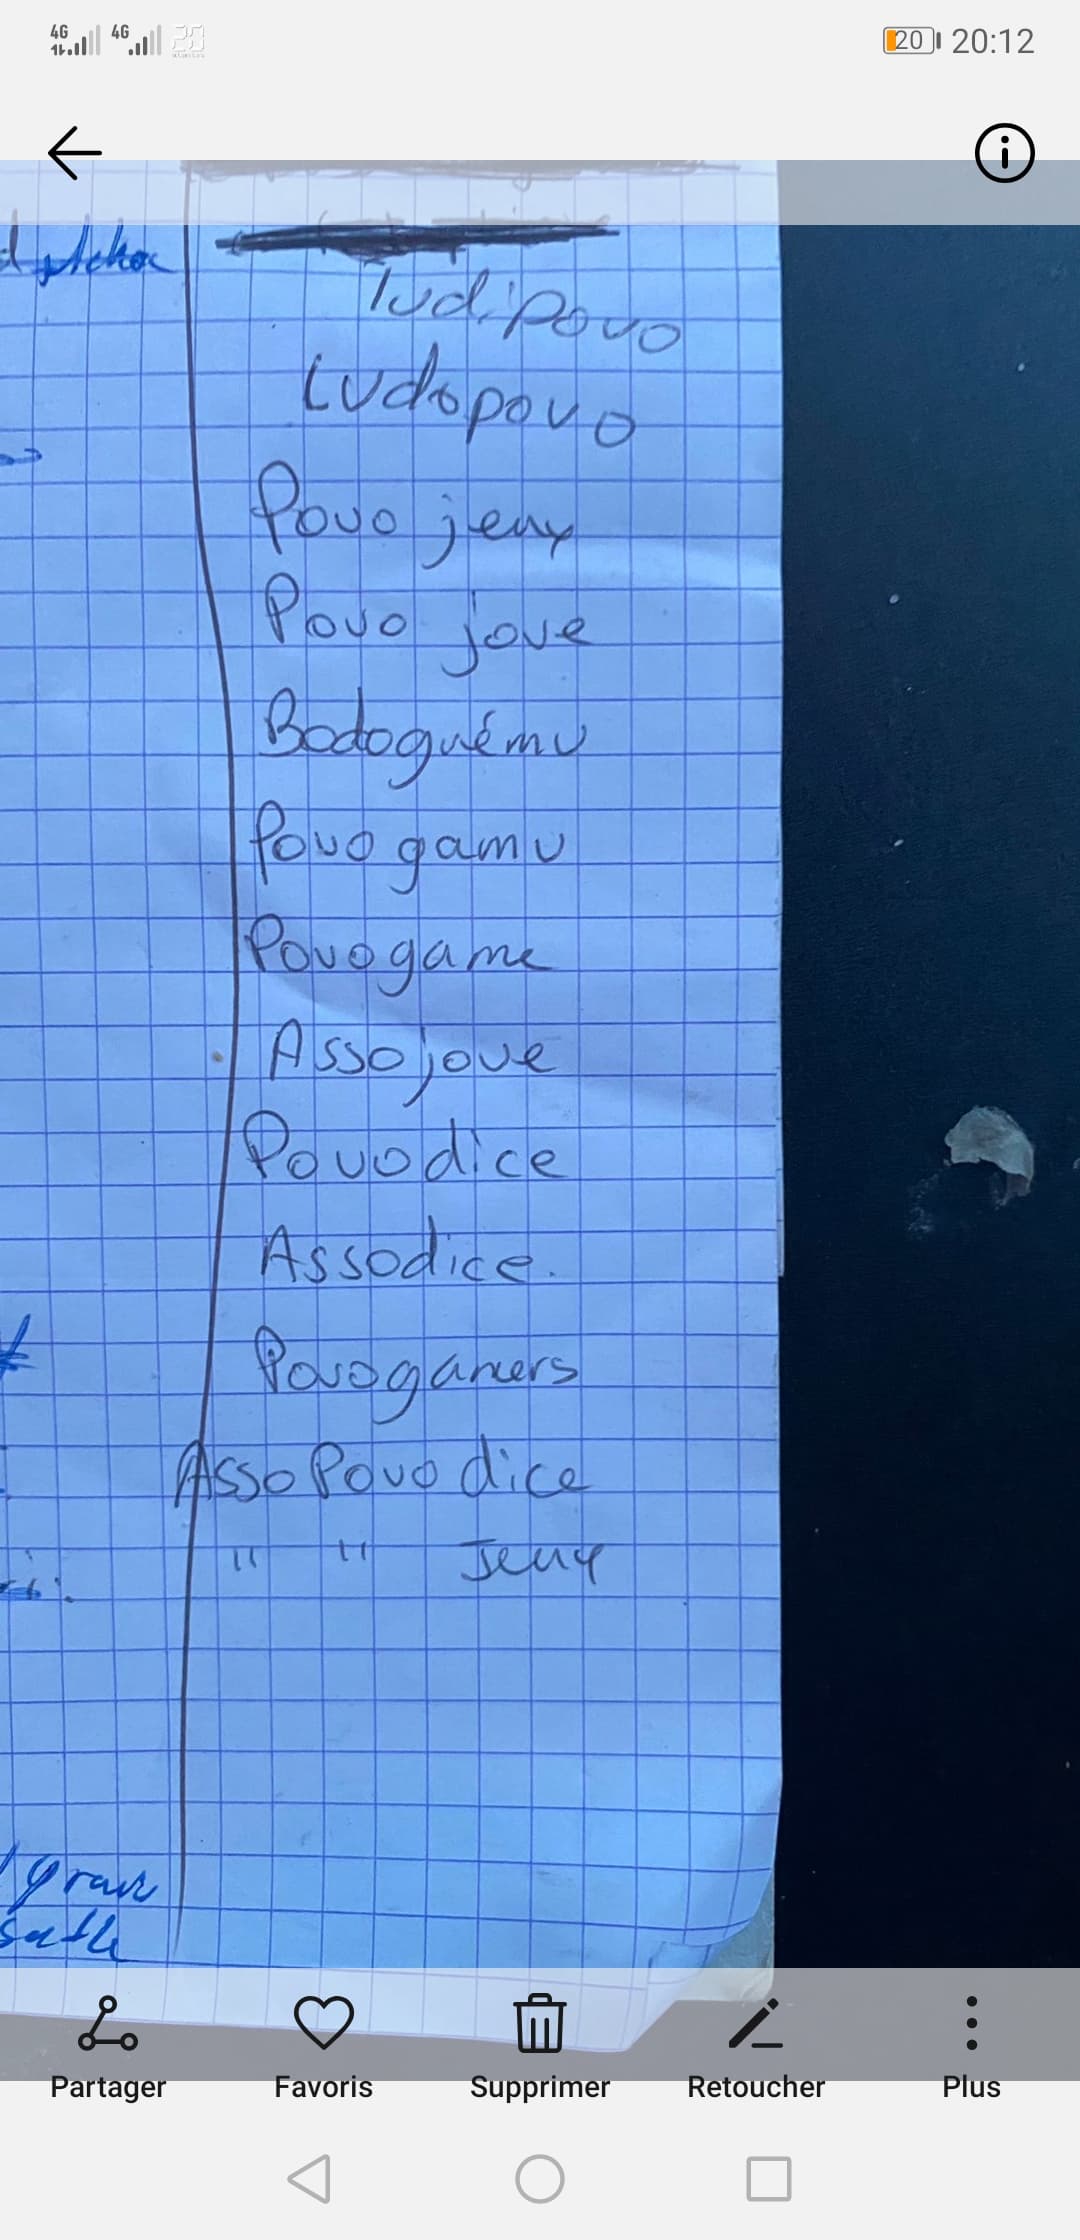 4G 4G 20 20:12
Ludipovo
Ludopovo
Povo jeux
Povo jove
Bodoguému
Povo gamu
Povogame
Assojove
Povodice
Assodice.
Povogamers
Asso Povo dice
" " Jeux
Partager Favoris Supprimer Retoucher Plus